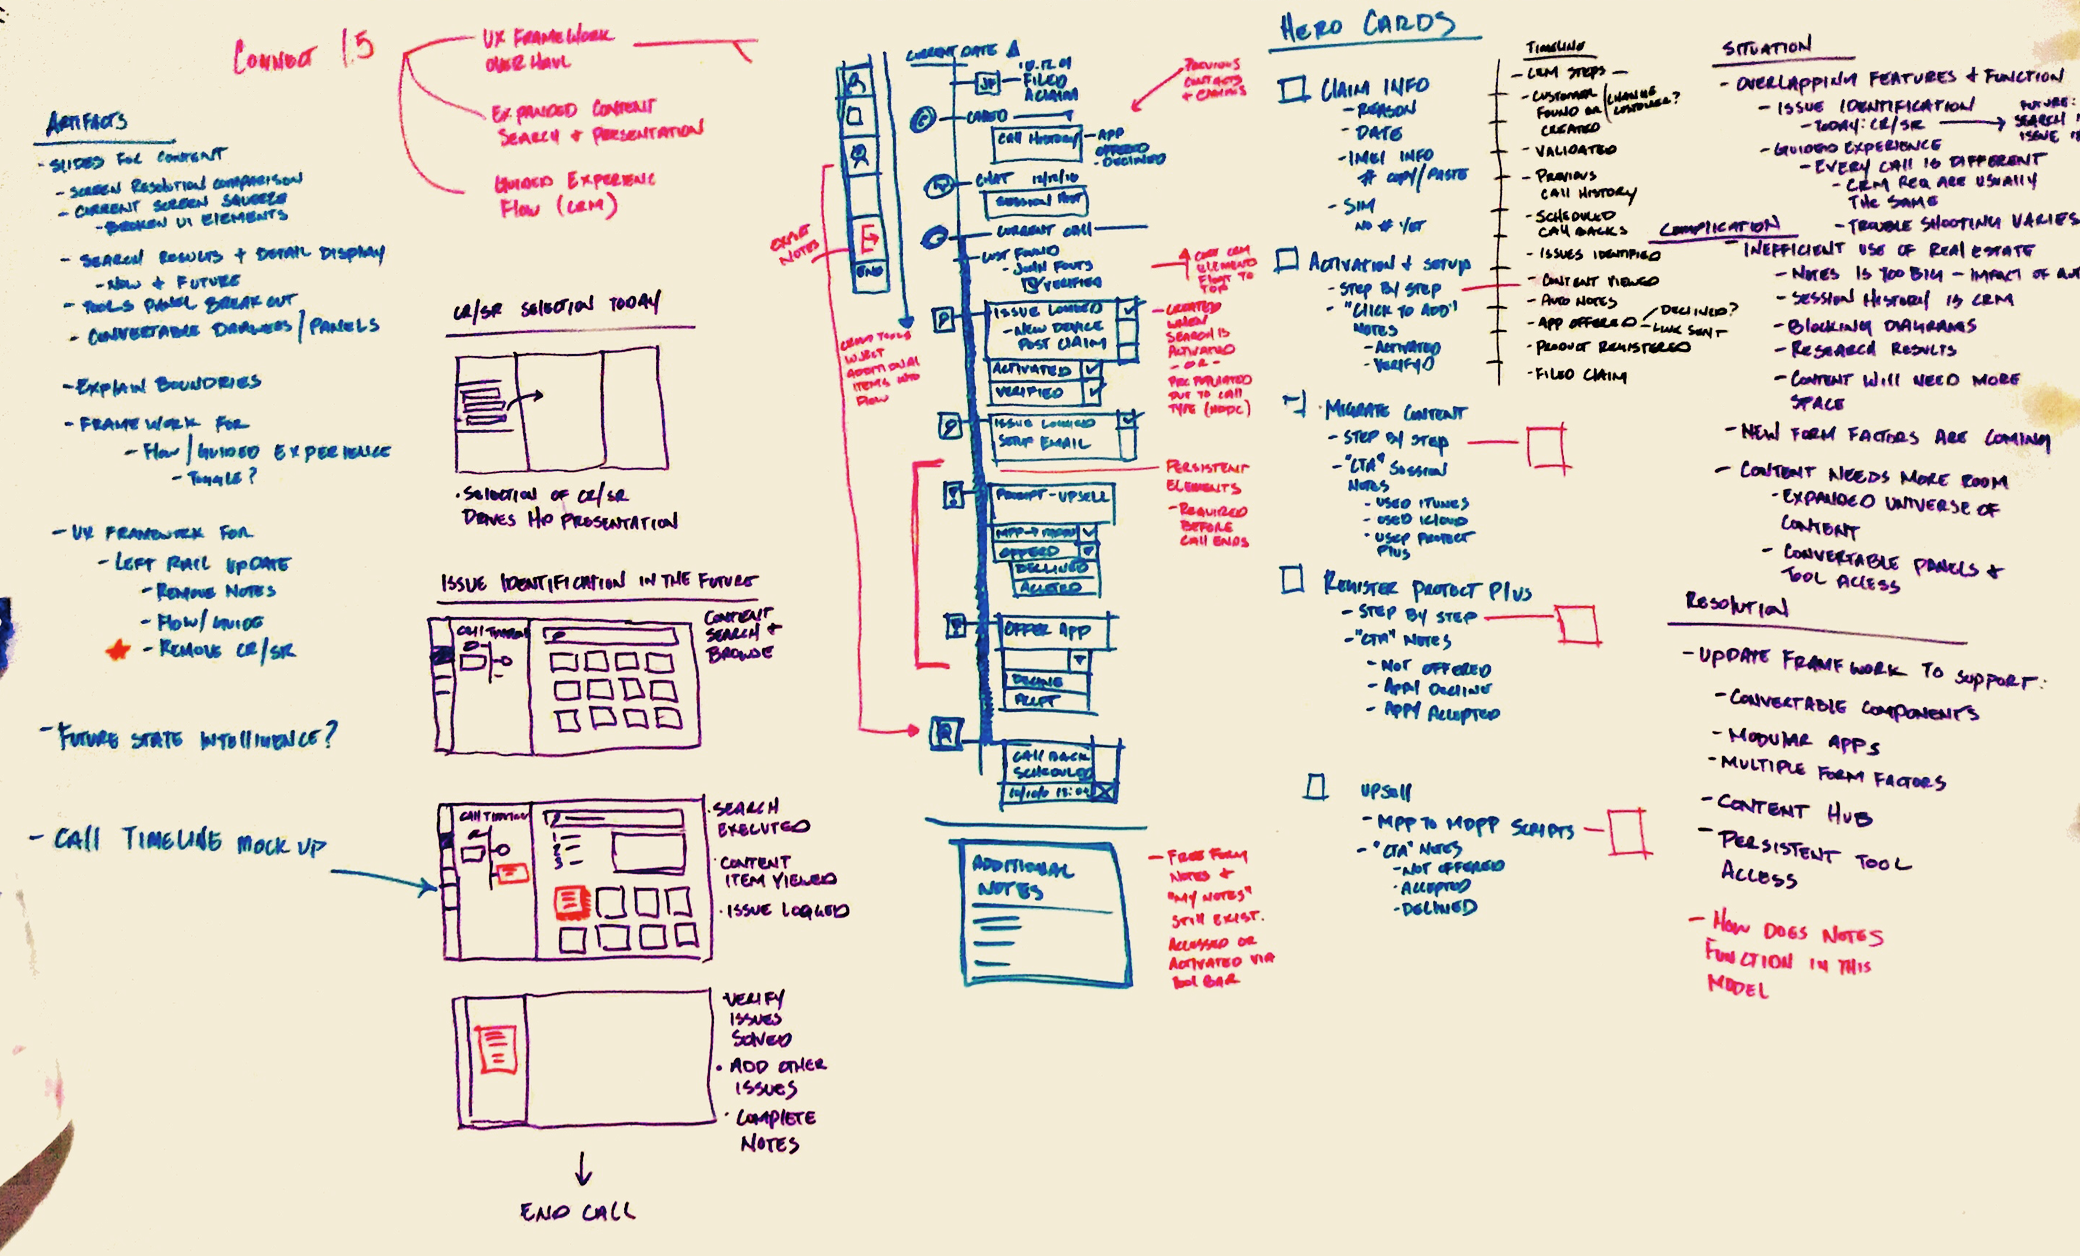 CONNECT 1.5
UX FRAMEWORK
OVERHAUL
EXPANDED CONTENT
SEARCH + PRESENTATION
GUIDED EXPERIENC
FLOW (CRM)
ARTIFACTS
- SLIDES FOR CONTENT
- SCREEN RESOLUTION COMPARISON
- CURRENT SCREEN SQUEEZE
- BROKEN UI ELEMENTS
- SEARCH RESULTS + DETAIL DISPLAY
- NOW + FUTURE
- TOOLS PANEL BREAK OUT
- CONVERTABLE DRAWERS/PANELS
- EXPLAIN BOUNDRIES
- FRAMEWORK FOR
- FLOW/GUIDED EXPERIENCE
- TOGGLE?
- UX FRAMEWORK FOR
- LEFT RAIL UPDATE
- REMOVE NOTES
- FLOW/GUIDE
- REMOVE CR/SR
- FUTURE STATE INTELLIGENCE?
- CALL TIMELINE MOCK UP
CR/SR SELECTION TODAY
• SELECTION OF CR/SR
DRIVES PRESENTATION
ISSUE IDENTIFICATION IN THE FUTURE
CALL TIMELINE
CONTENT
SEARCH +
BROWSE
CALL TIMELINE
• SEARCH
EXECUTED
• CONTENT
ITEM VIEWED
• ISSUE LOGGED
• VERIFY
ISSUES
SOLVED
• ADD OTHER
ISSUES
• COMPLETE
NOTES
END CALL
EXPORT
NOTES
END
CURRENT DATE
10.12.01
FILED
A CLAIM
CALLED
CALL HISTORY
- APP
OFFERED
- DECLINED
CHAT 12/12/10
SESSION
CURRENT CALL
CUST FOUND
- JOHN FOUTS
VERIFIED
ISSUE LOGGED
- NEW DEVICE
POST CLAIM
ACTIVATED
VERIFIED
ISSUE LOGGED
SETUP EMAIL
PROMPT - UPSELL
MPP →
OFFERED
DECLINED
ACCEPTED
OFFER APP
DECLINE
ACCEPT
CALL BACK
SCHEDULED
ADDITIONAL
NOTES
PREVIOUS
CONTACTS
+ CLAIMS
CORE CRM
ELEMENTS
FLOAT TO
TOP
- CREATED
WHEN
SEARCH IS
ACTIVATED
- OR -
PRE POPULATED
DUE TO CALL
TYPE (MDPC)
TOOLS
INJECT
ADDITIONAL
ITEMS INTO
FLOW
PERSISTENT
ELEMENTS
- REQUIRED
BEFORE
CALL ENDS
- FREE FORM
NOTES +
"MY NOTES"
STILL EXIST.
ACCESSED OR
ACTIVATED VIA
TOOL BAR
HERO CARDS
CLAIM INFO
- REASON
- DATE
- IMEI INFO
# COPY/PASTE
- SIM
NO # YET
ACTIVATION + SETUP
- STEP BY STEP
- "CLICK TO ADD"
NOTES
- ACTIVATED
- VERIFYD
• MIGRATE CONTENT
- STEP BY STEP
- "CTA" SESSION
NOTES
- USED ITUNES
- USED ICLOUD
- USED PROTECT
PLUS
REGISTER PROTECT PLUS
- STEP BY STEP
- "CTA" NOTES
- NOT OFFERED
- APP DECLINE
- APP ACCEPTED
UPSELL
- MPP TO MDPP SCRIPTS
- "CTA" NOTES
- NOT OFFERED
- ACCEPTED
- DECLINED
TIMELINE
- CRM STEPS -
- CUSTOMER
FOUND OR
CREATED
/CHANGE
CUSTOMER?
- VALIDATED
- PREVIOUS
CALL HISTORY
- SCHEDULED
CALL BACKS
- ISSUES IDENTIFIED
- CONTENT VIEWED
- AUTO NOTES
- APP OFFERED
DECLINED?
LINK SENT
- PRODUCT REGISTERED
- FILED CLAIM
SITUATION
- OVERLAPPING FEATURES + FUNCTION
- ISSUE IDENTIFICATION
- TODAY: CR/SR
FUTURE:
SEARCH
ISSUE
- GUIDED EXPERIENCE
- EVERY CALL IS DIFFERENT
- CRM REQ ARE USUALLY
THE SAME
- TROUBLE SHOOTING VARIES
COMPLICATION
- INEFFICIENT USE OF REAL ESTATE
- NOTES IS TOO BIG - IMPACT OF
- SESSION HISTORY IS CRM
- BLOCKING DIAGRAMS
- RESEARCH RESULTS
- CONTENT WILL NEED MORE
SPACE
- NEW FORM FACTORS ARE COMING
- CONTENT NEEDS MORE ROOM
- EXPANDED UNIVERSE OF
CONTENT
- CONVERTABLE PANELS +
TOOL ACCESS
RESOLUTION
- UPDATE FRAMEWORK TO SUPPORT:
- CONVERTABLE COMPONENTS
- MODULAR APPS
- MULTIPLE FORM FACTORS
- CONTENT HUB
- PERSISTENT TOOL
ACCESS
- HOW DOES NOTES
FUNCTION IN THIS
MODEL